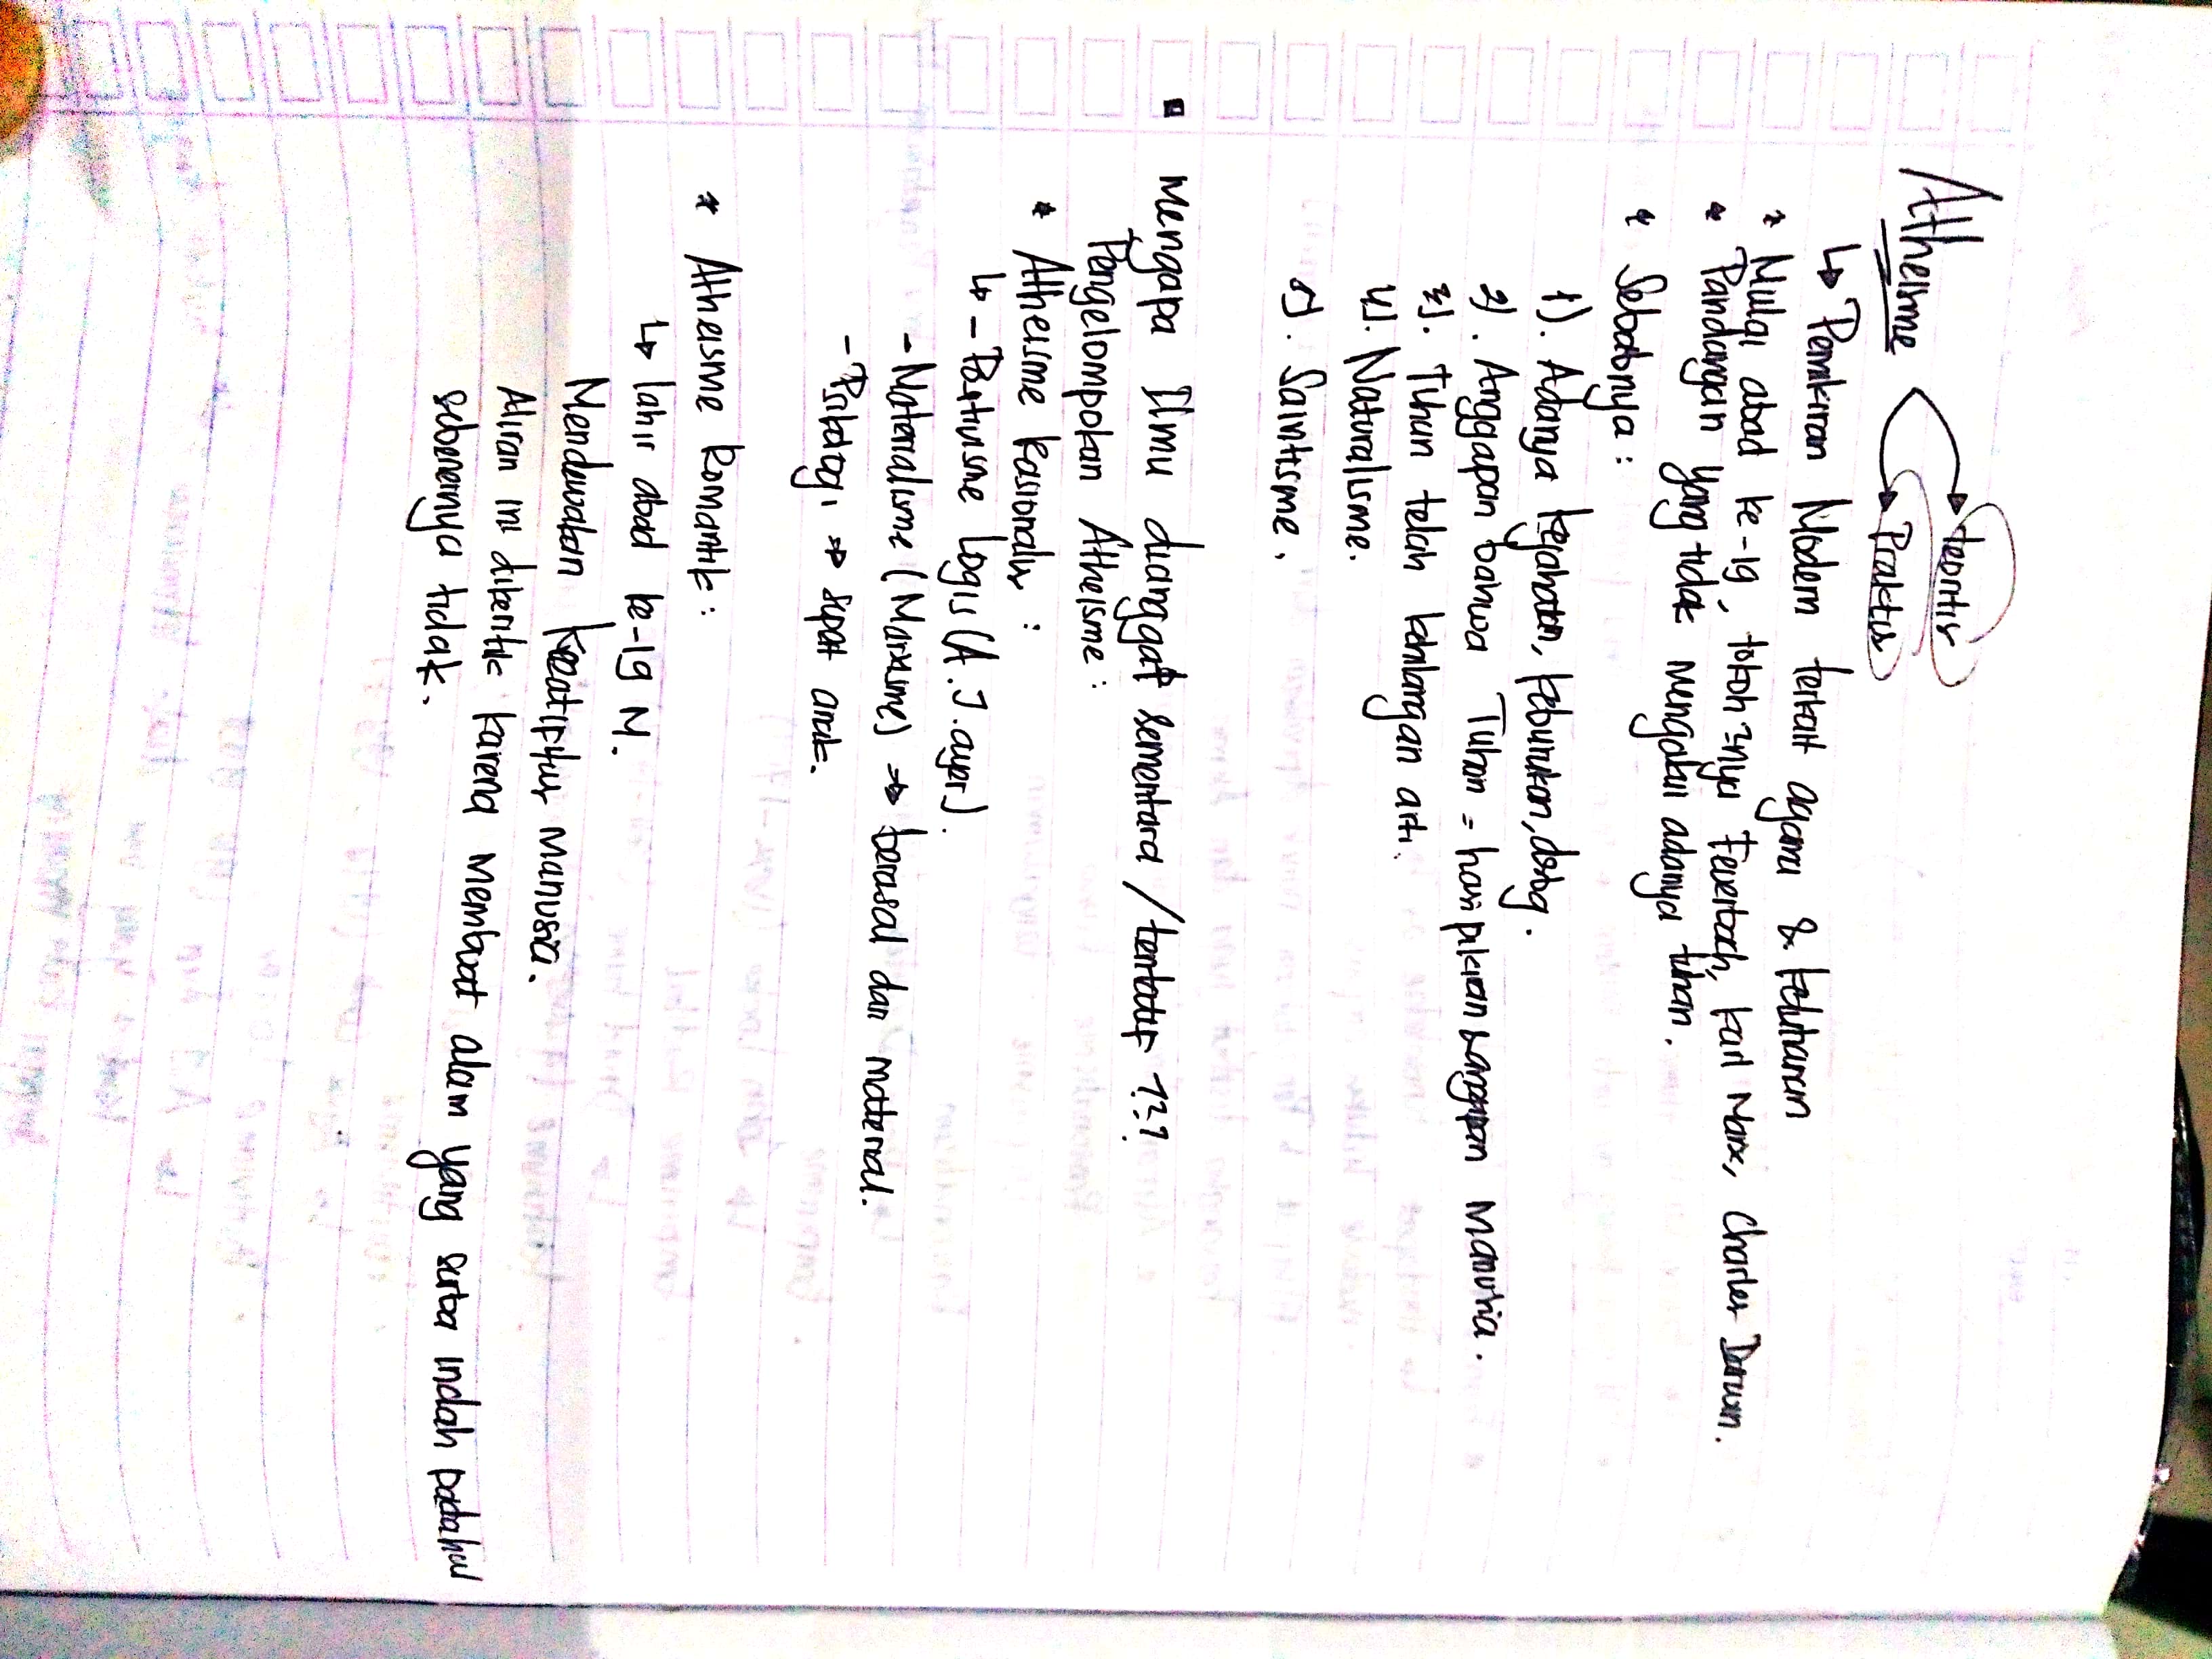 Atheisme
teoritis
Praktis
↳ Pemikiran Modern terkait agama & ketuhanan
* Mulai abad ke-19, tokoh²nya Feuerbach, Karl Marx, Charles Darwin.
* Pandangan yang tidak mengakui adanya tuhan.
* Sebabnya :
1). Adanya kejahatan, keburukan, dsbg.
2). Anggapan bahwa Tuhan = hasil pikiran & anggapan manusia.
3). Tuhan telah kehilangan arti.
4). Naturalisme.
5). Saintisme.
▪ Mengapa Ilmu dianggap sementara / tentatif ???
Pengelompokan Atheisme :
* Atheisme Rasionalis :
↳ - Positivisme Logis (A.J. ayer).
- Materialisme (Marxisme) → berasal dari material.
- Psikologi → supat anak.
* Atheisme Romantik :
↳ lahir abad ke-19 M.
Mendewakan kreatifitas manusia.
Aliran ini dikritik karena membuat alam yang serba indah padahal
sebenarnya tidak.